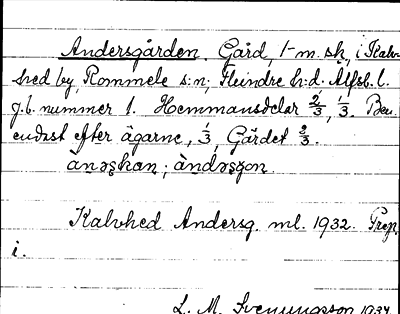 Andersgården. Gård, 1 m. sk, i Kalv-
hed by, Rommele s:n, Fleindre h:d. Älfsb. l.
j.b. nummer 1. Hemmansdelar 2/3, 1/3. Ben.
endast efter ägarne, 1/3, Gärdet 2/3.
ànəʂkan; àndəʂgon.
Kalvhed Andersg. ml. 1932. Prep.
i.
L. M. Svenungsson 1934